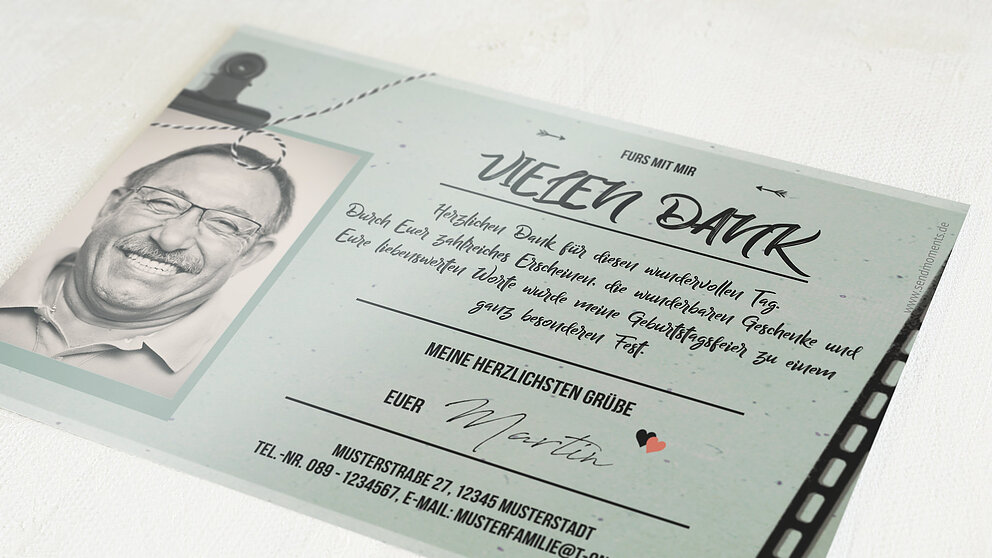 FURS MIT MIR
VIELEN DANK
Herzlichen Dank für diesen wundervollen Tag.
Durch Euer zahlreiches Erscheinen, die wunderbaren Geschenke und
Eure liebenswerten Worte wurde meine Geburtstagsfeier zu einem
ganz besonderen Fest.
MEINE HERZLICHSTEN GRÜßE
EUER Martin
MUSTERSTRAßE 27, 12345 MUSTERSTADT
TEL.-NR. 089 - 1234567, E-MAIL: MUSTERFAMILIE@T-ON
www.sendmoments.de